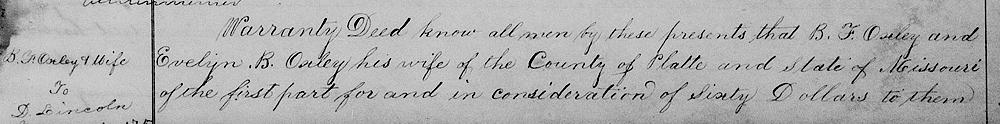 Warranty Deed know all men by these presents that B. F. Oxley and
B. F. Oxley & Wife
Evelyn B. Oxley his wife of the County of Platte and State of Missouri
To
of the first part for and in consideration of Sixty Dollars to them
D. Lincoln